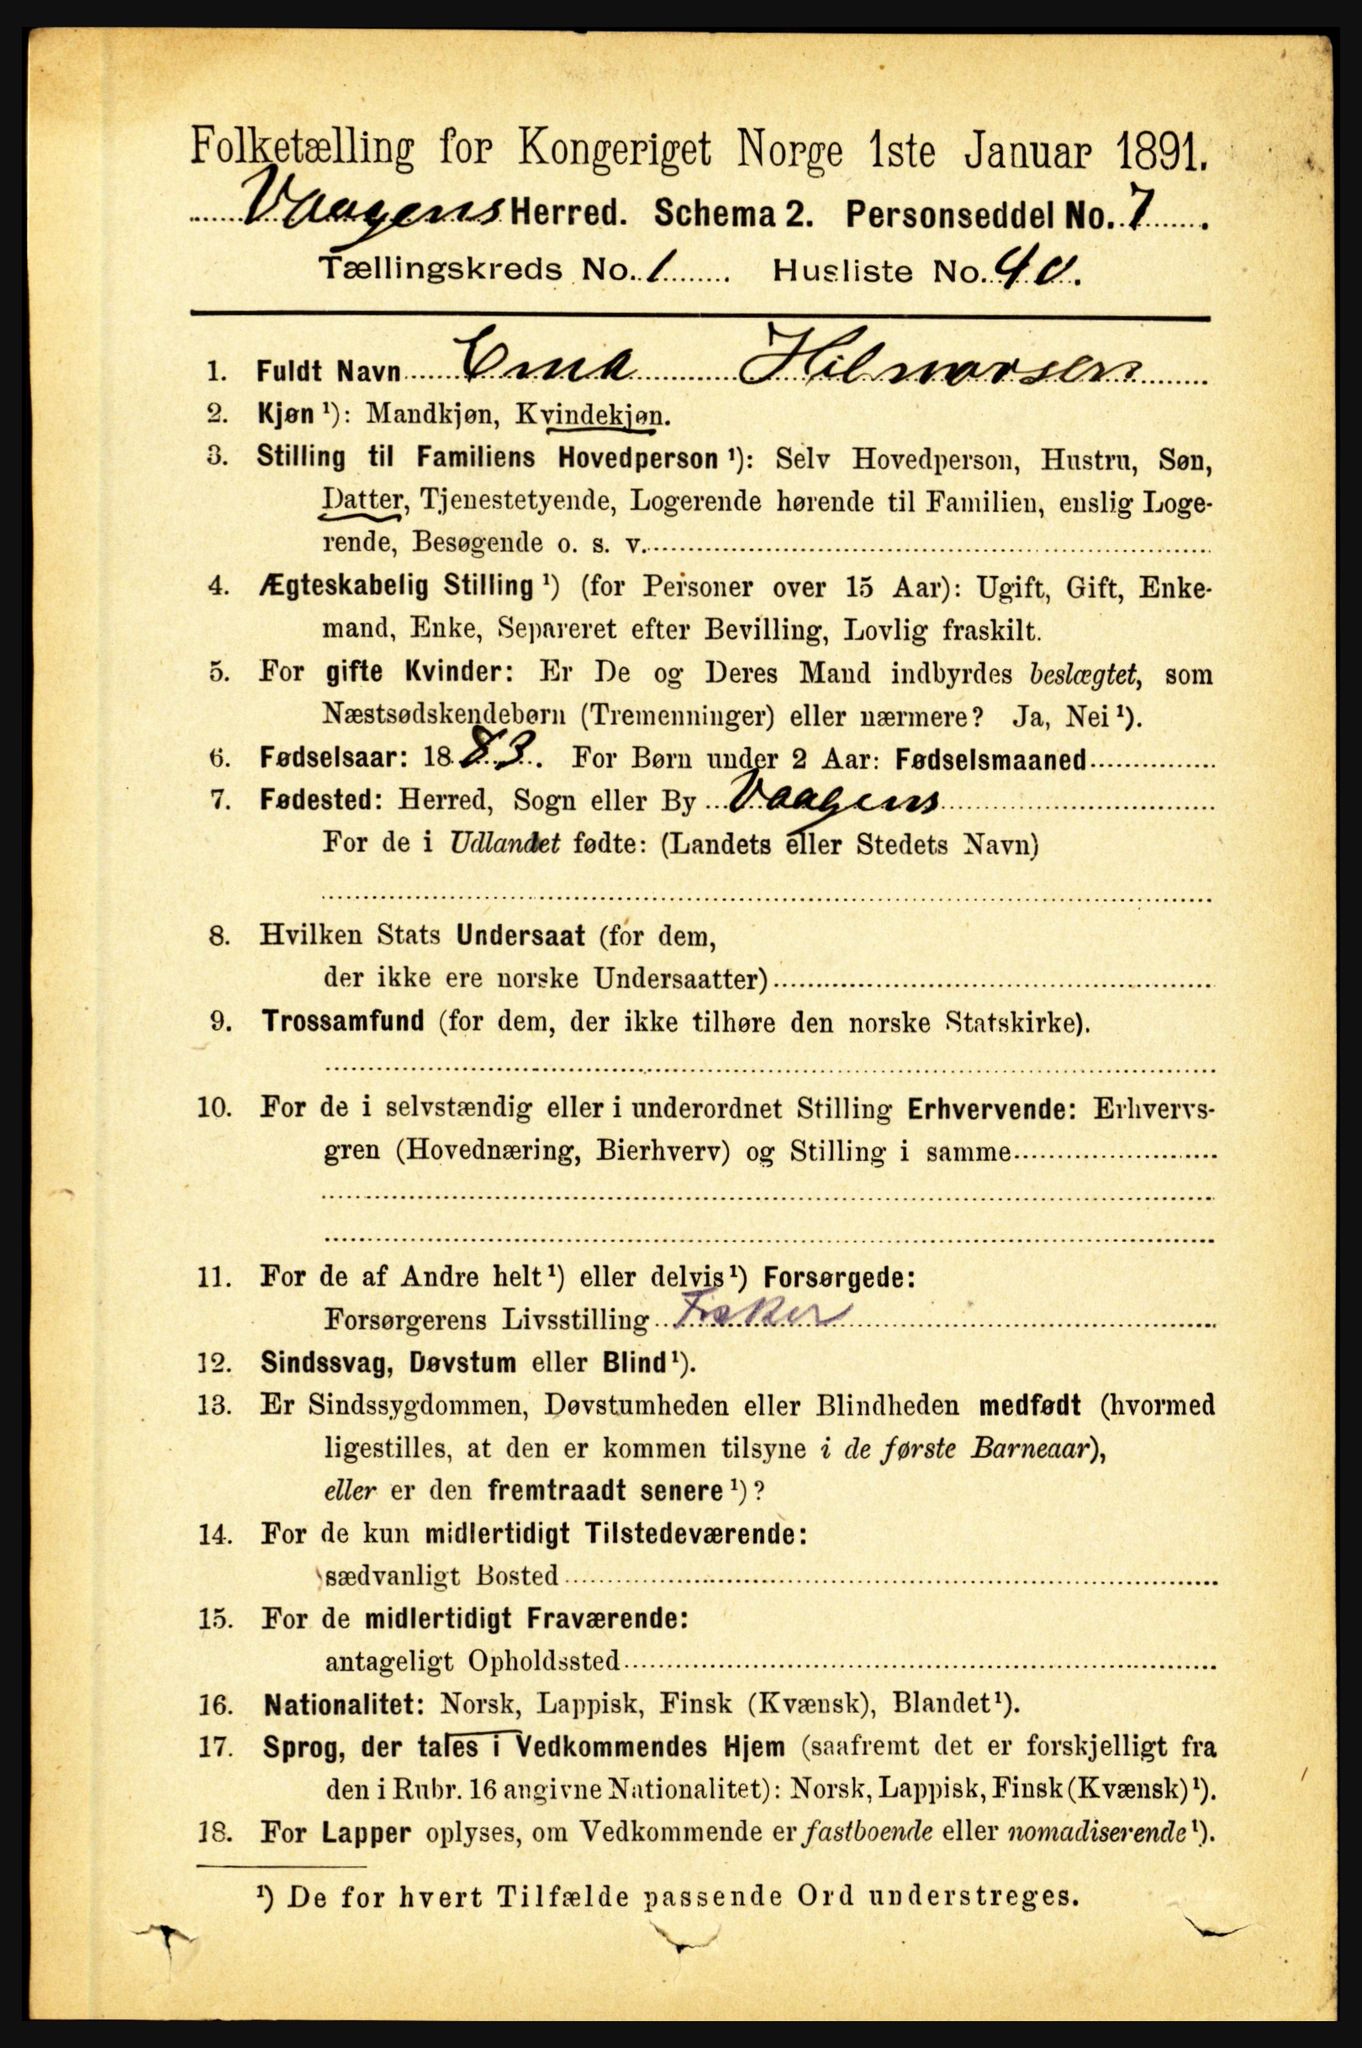 Folketælling for Kongeriget Norge 1ste Januar 1891.
Vaagens Herred. Schema 2. Personseddel No. 7.
Tællingskreds No. 1 Husliste No. 40.
1. Fuldt Navn Erna Hilmarsen
2. Kjøn ¹): Mandkjøn, Kvindekjøn.
3. Stilling til Familiens Hovedperson ¹): Selv Hovedperson, Hustru, Søn,
Datter, Tjenestetyende, Logerende hørende til Familien, enslig Loge-
rende, Besøgende o. s. v.
4. Ægteskabelig Stilling ¹) (for Personer over 15 Aar): Ugift, Gift, Enke-
mand, Enke, Separeret efter Bevilling, Lovlig fraskilt.
5. For gifte Kvinder: Er De og Deres Mand indbyrdes beslægtet, som
Næstsødskendebørn (Tremenninger) eller nærmere? Ja, Nei ¹).
6. Fødselsaar: 1883. For Børn under 2 Aar: Fødselsmaaned
7. Fødested: Herred, Sogn eller By Vaagens
For de i Udlandet fødte: (Landets eller Stedets Navn)
8. Hvilken Stats Undersaat (for dem,
der ikke ere norske Undersaatter)
9. Trossamfund (for dem, der ikke tilhøre den norske Statskirke).
10. For de i selvstændig eller i underordnet Stilling Erhvervende: Erhvervs-
gren (Hovednæring, Bierhverv) og Stilling i samme
11. For de af Andre helt ¹) eller delvis ¹) Forsørgede:
Forsørgerens Livsstilling Fisker
12. Sindssvag, Døvstum eller Blind ¹).
13. Er Sindssygdommen, Døvstumheden eller Blindheden medfødt (hvormed
ligestilles, at den er kommen tilsyne i de første Barneaar),
eller er den fremtraadt senere ¹)?
14. For de kun midlertidigt Tilstedeværende:
sædvanligt Bosted
15. For de midlertidigt Fraværende:
antageligt Opholdssted
16. Nationalitet: Norsk, Lappisk, Finsk (Kvænsk), Blandet ¹).
17. Sprog, der tales i Vedkommendes Hjem (saafremt det er forskjelligt fra
den i Rubr. 16 angivne Nationalitet): Norsk, Lappisk, Finsk (Kvænsk) ¹).
18. For Lapper oplyses, om Vedkommende er fastboende eller nomadiserende ¹).
¹) De for hvert Tilfælde passende Ord understreges.